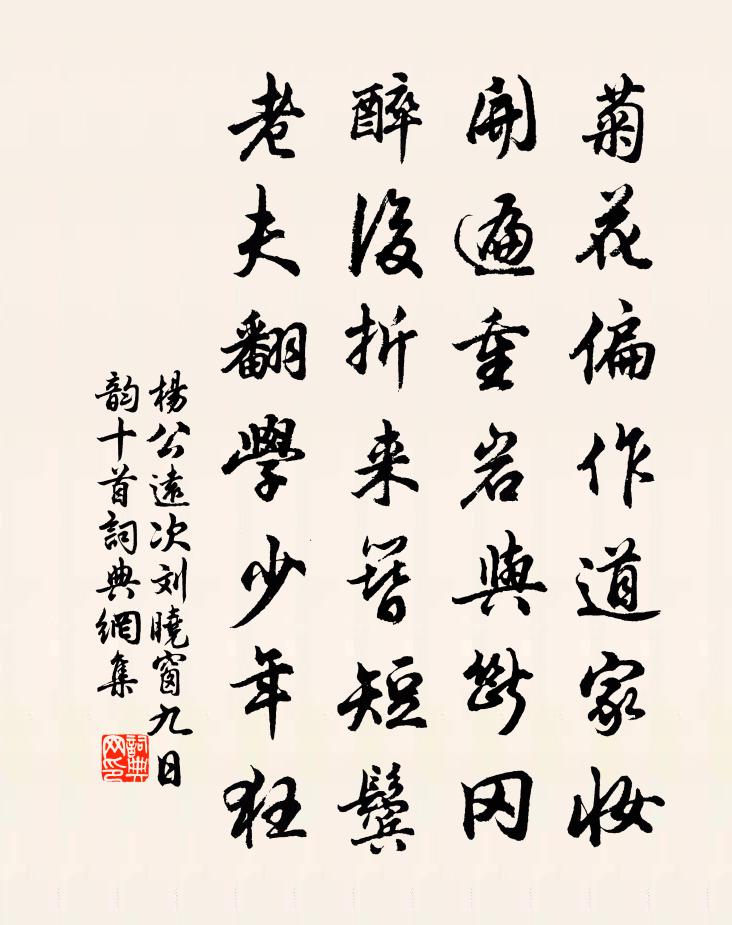 菊花偏作道家妝
開遍重岩與斷岡
醉後折来簪短鬢
老夫翻學少年狂
楊公遠次刘曉窗九日
韵十首詞典網集
詞典
网印